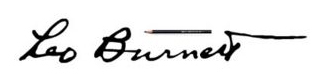 Leo Burnett